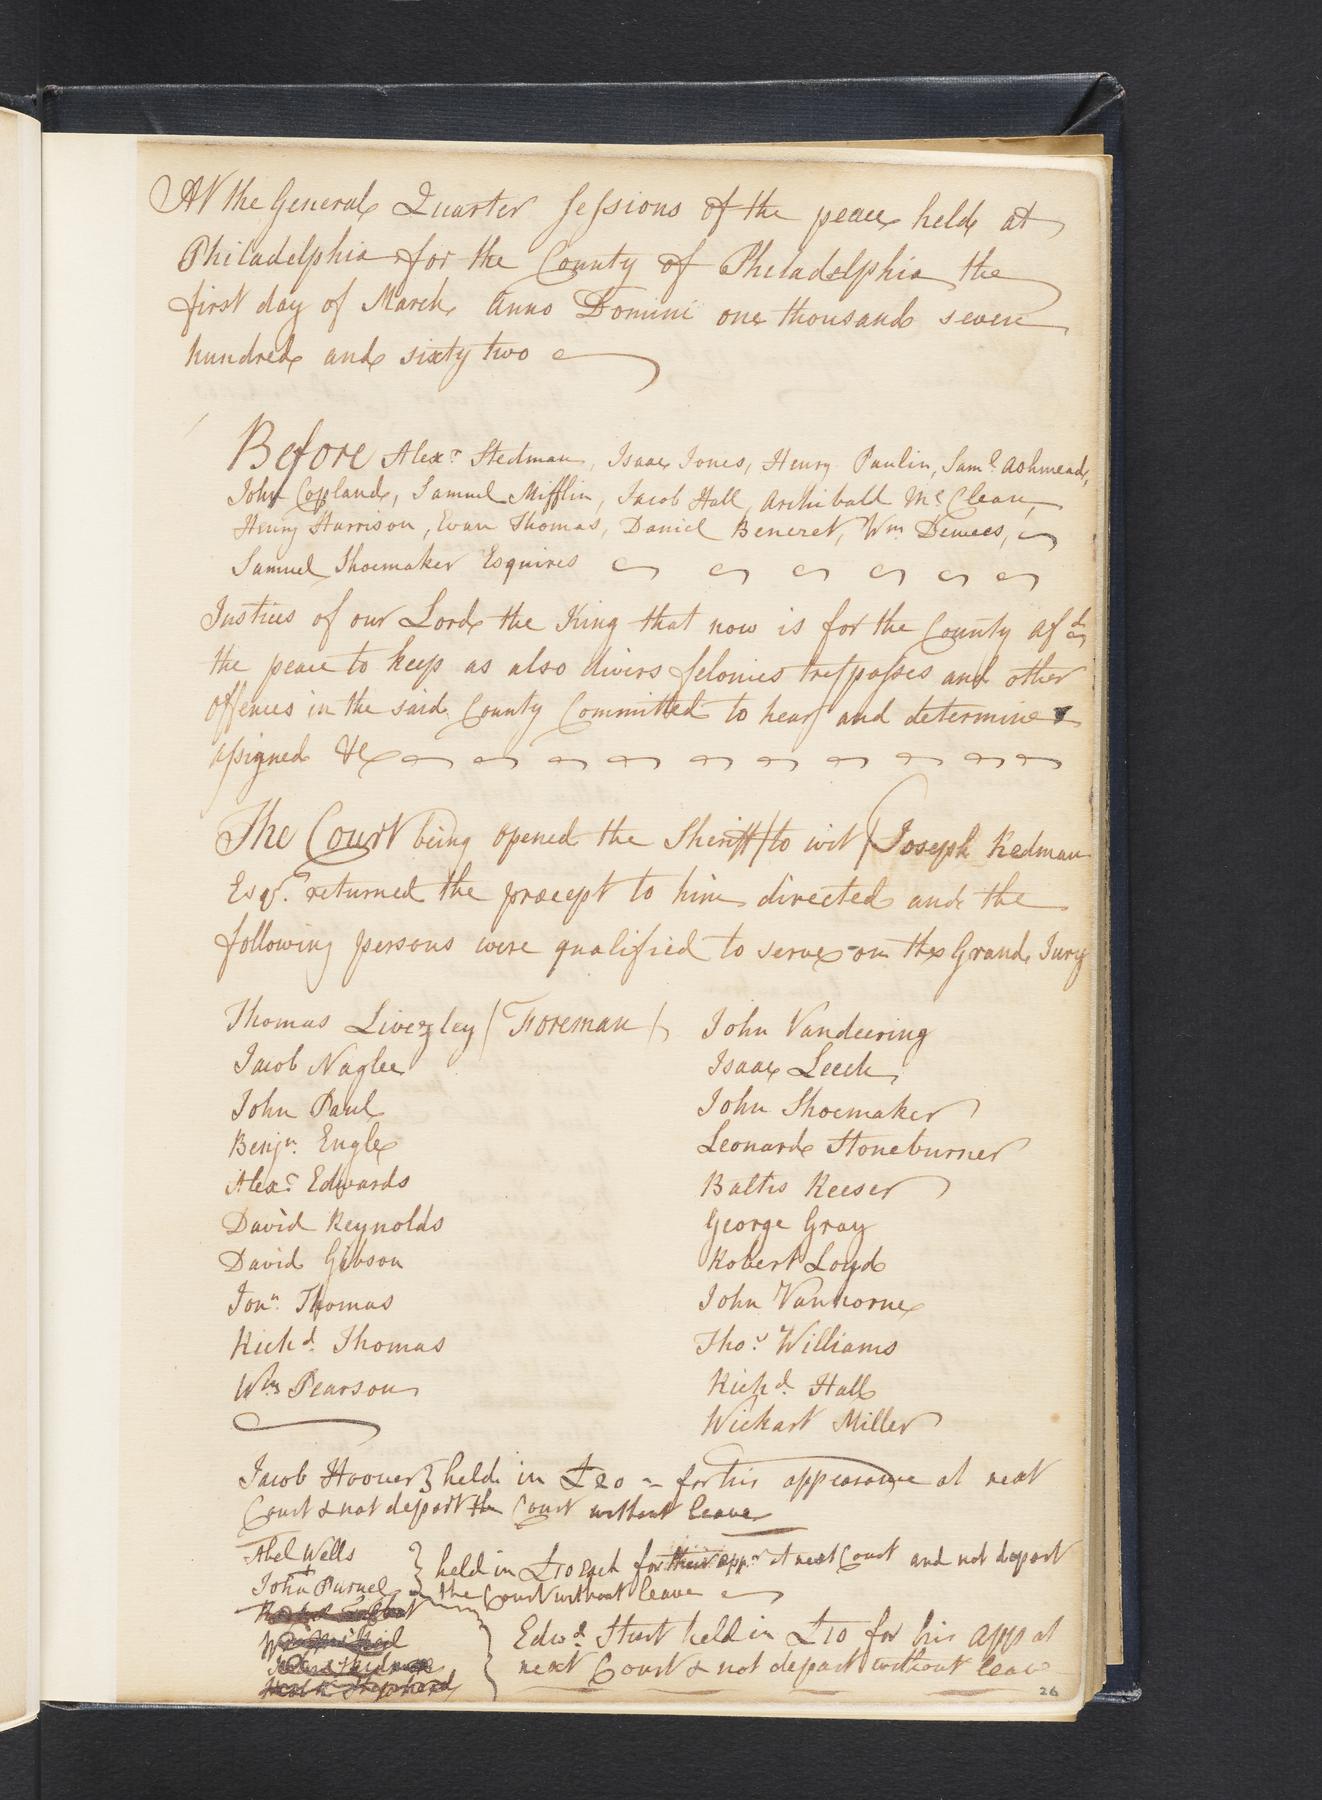 At the General Quarter Sessions of the peace held at
Philadelphia for the County of Philadelphia the
first day of March Anno Domini one thousand seven
hundred and sixty two
Before Alexr. Stedman, Isaac Jones, Henry Paulin, Saml. Ashmead,
John Copland, Samuel Mifflin, Jacob Hall, Archibald McClean,
Henry Harrison, Evan Thomas, Daniel Beneret, Wm Dewees,
Samuel Shoemaker Esquires
Justices of our Lord the King that now is for the County afd
the peace to keep as also divers felonies trespasses and other
Offences in the said County Committed to hear and determine
assigned &c
The Court being opened the Sheriff (to wit) Joseph Redman
Esqr. returned the precept to him directed and the
following persons were qualified to serve on the Grand Jury
Thomas Livezley (Foreman)
Jacob Naglee
John Paul
Benjn. Engle
Alexr. Edwards
David Reynolds
David Gibson
Jonn. Thomas
Richd. Thomas
Wm Pearson
John Vandeering
Isaac Leech
John Shoemaker
Leonard Stoneburner
Baltis Reeser
George Gray
Robert Loyd
John Vanhorne
Thos. Williams
Richd. Hall
Wickart Miller
Jacob Hoover } held in £20 - for his appearance at next
Court & not depart the Court without leave
Abel Wells
John Purnel
} held in £10 each for their appr. at next Court and not depart
the Court without leave
Shepherd
Edwd. held in £10 for his app at
next Court & not depart without leave
26